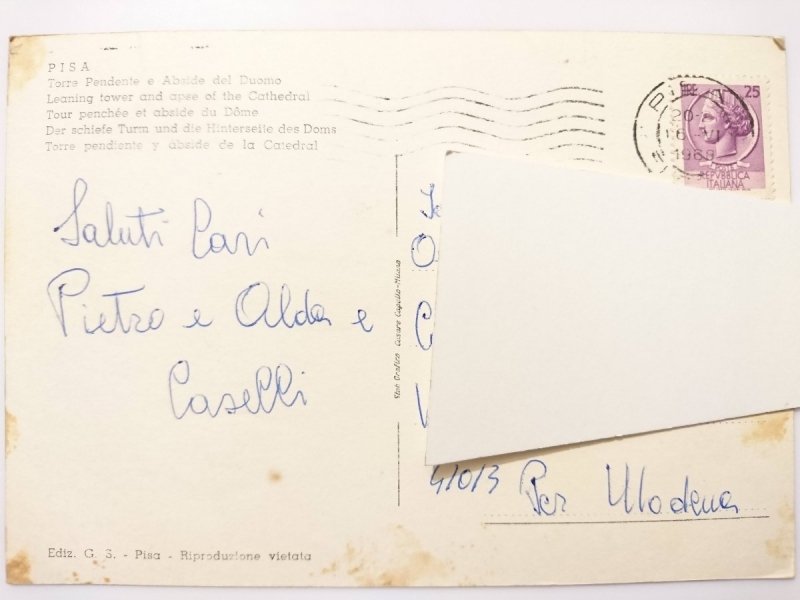 PISA
Torre Pendente e Abside del Duomo
Leaning tower and apse of the Cathedral
Tour penchée et abside du Dôme
Der schiefe Turm und die Hinterseite des Doms
Torre pendiente y abside de la Catedral
Saluti Cari
Pietro e Alda e
Caselli
Ediz. G. S. - Pisa - Riproduzione vietata
Cesare Capello-Milano
PISA
20-
16 VI
1968
LIRE 25
REPVBBLICA
ITALIANA
41013 Per Modena